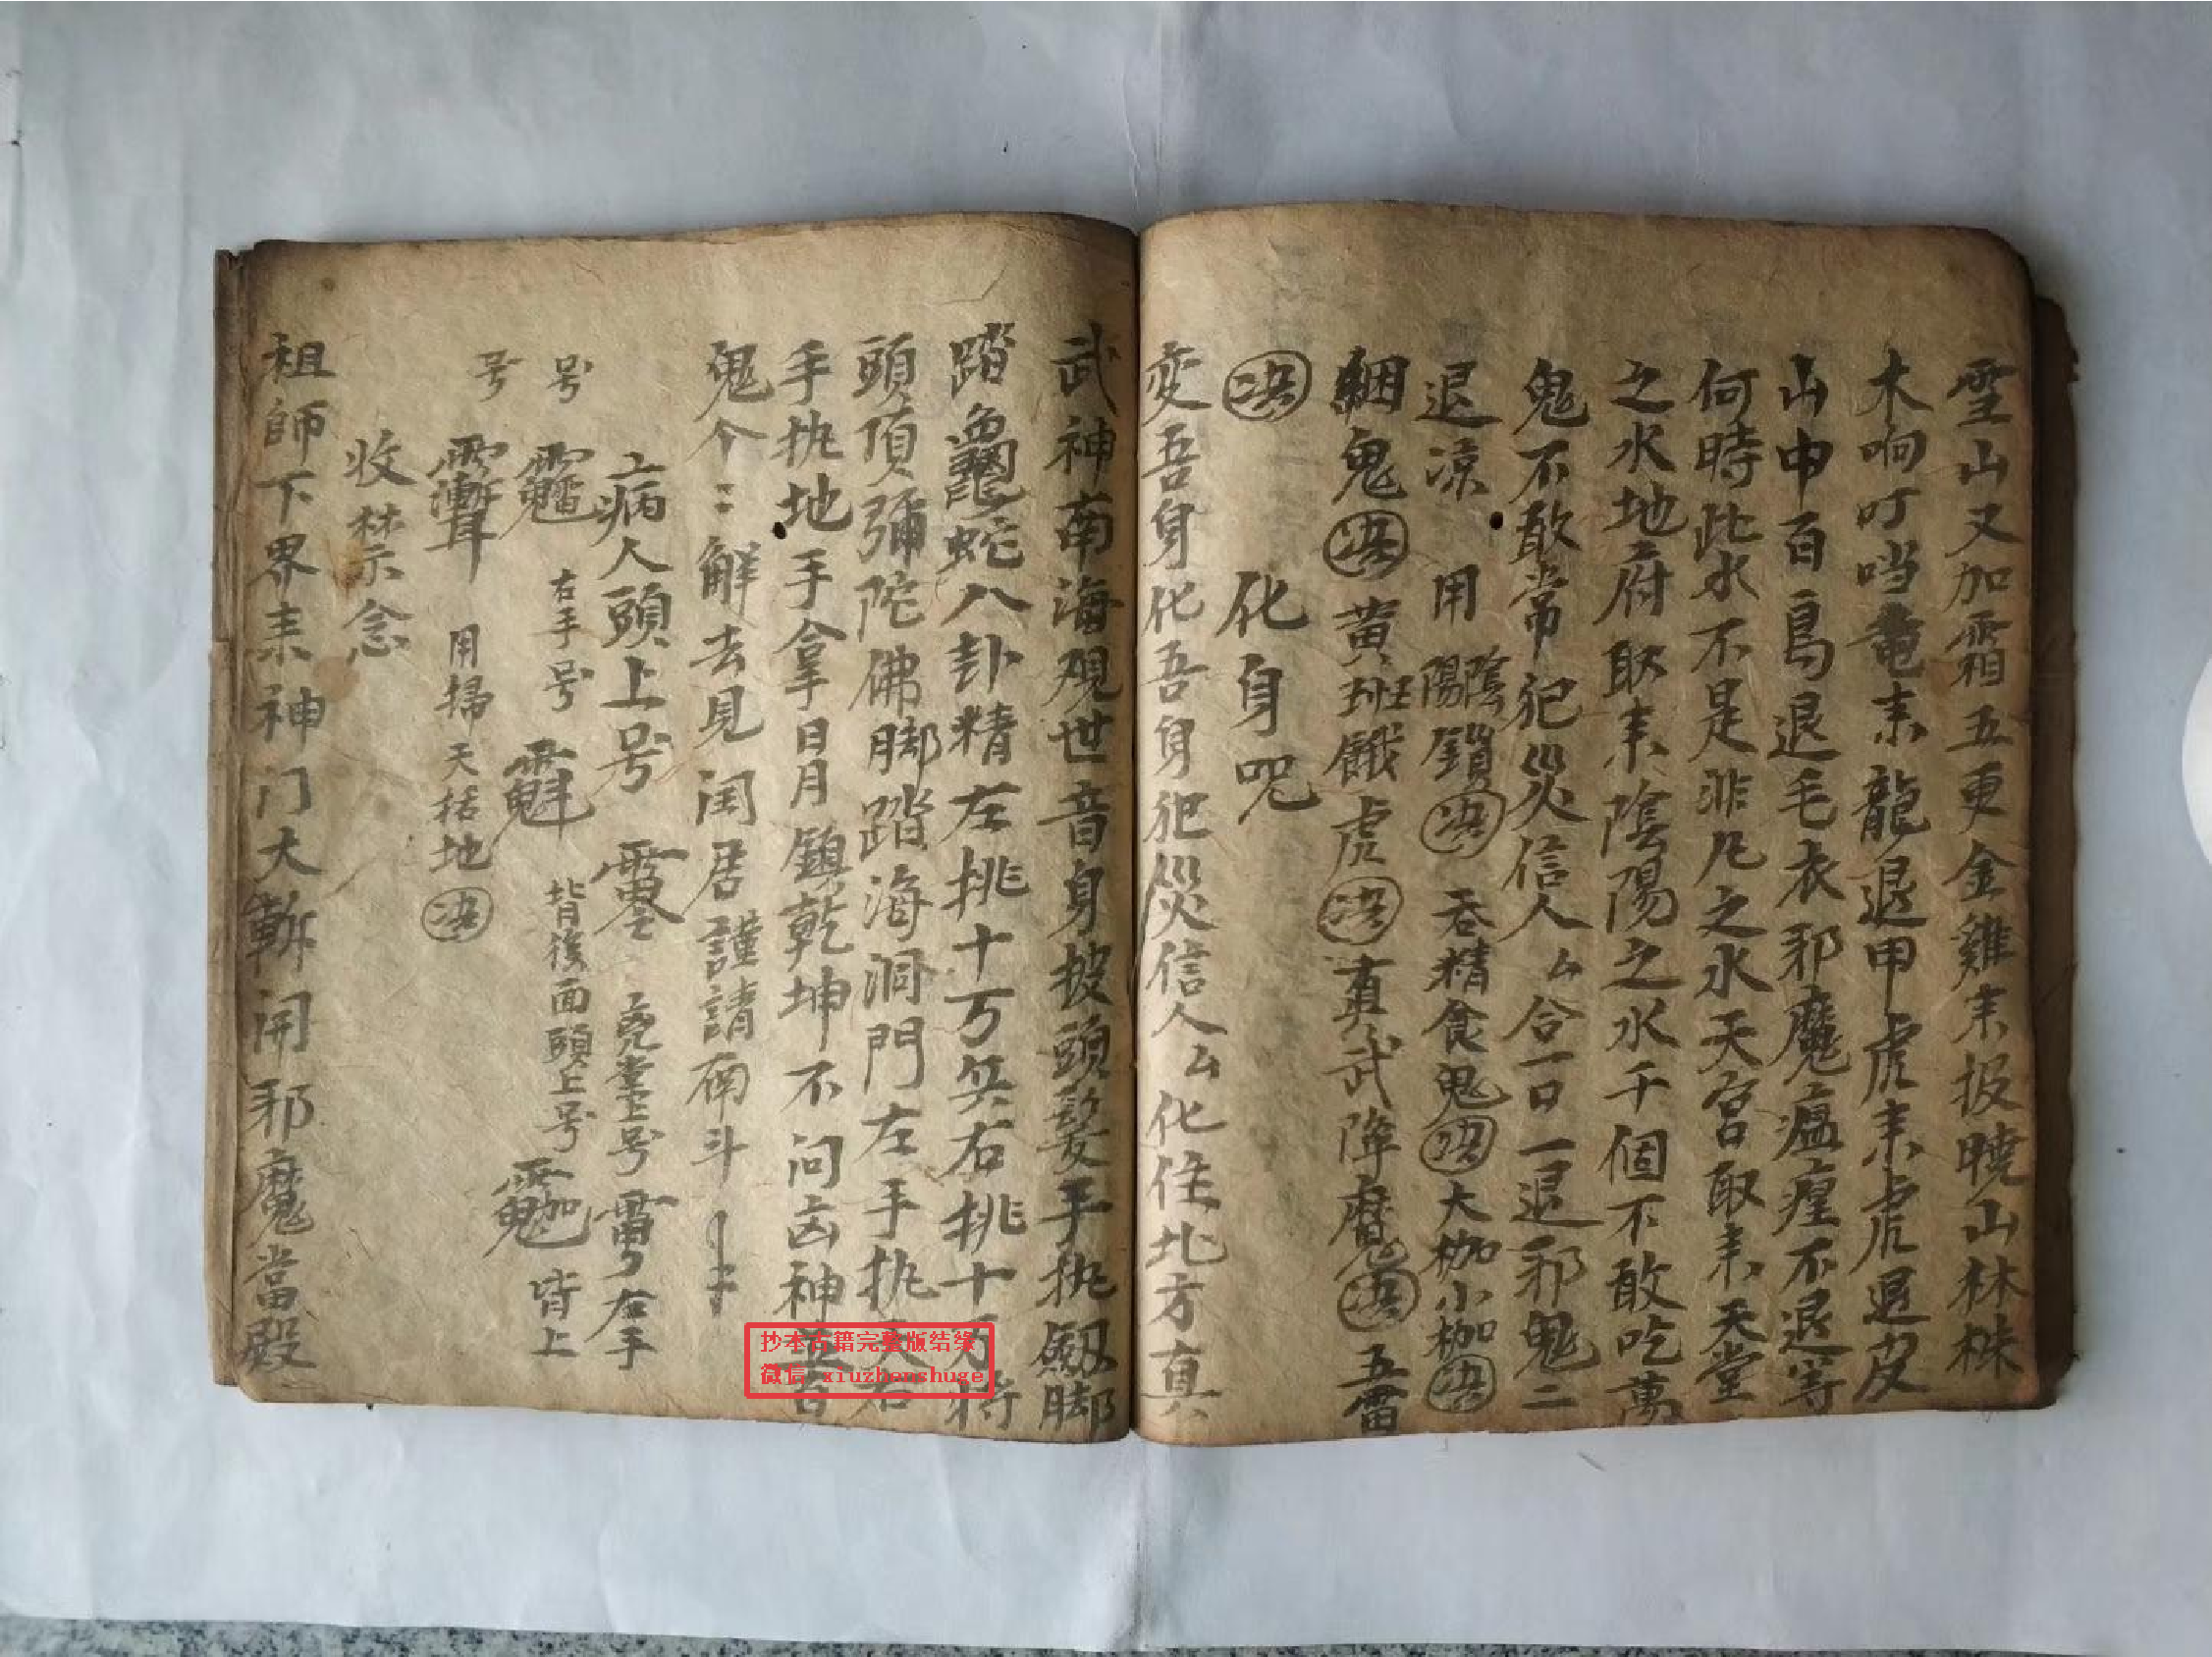 雪山又加霜五更金雞来报曉山林株
木响叮噹竜来龍退甲虎来虎退皮
山中百鳥退毛衣邪魔瘟瘟不退等
何時此水不是非凡之水天宮取来天堂
之水地府取来陰陽之水千個不敢吃萬
鬼不敢常犯災信人厶合一口一退邪鬼二
退凉 用陰陽鎖决 吞精食鬼决大枷小枷决
綑鬼决黄班餓虎决真武降魔决五雷
决 化身咒
变吾身化吾身犯災信人厶化住北方真
武神南海观世音身披頭髮手执劔脚
踏龜蛇八卦精左挑十万兵右挑十万将
頭頂彌陀佛脚踏海洞門左手执天右
手执地手拿日月鎮乾坤不问凶神
鬼个〻解去見阎君謹請南斗
病人頭上号 号 右手
号 右手号 背後面頭上号 皆上
号 用掃天括地决
收禁念
祖師下界来神门大斬开邪魔當殿
抄本古籍完整版结缘
微信：xiuzhenshuge